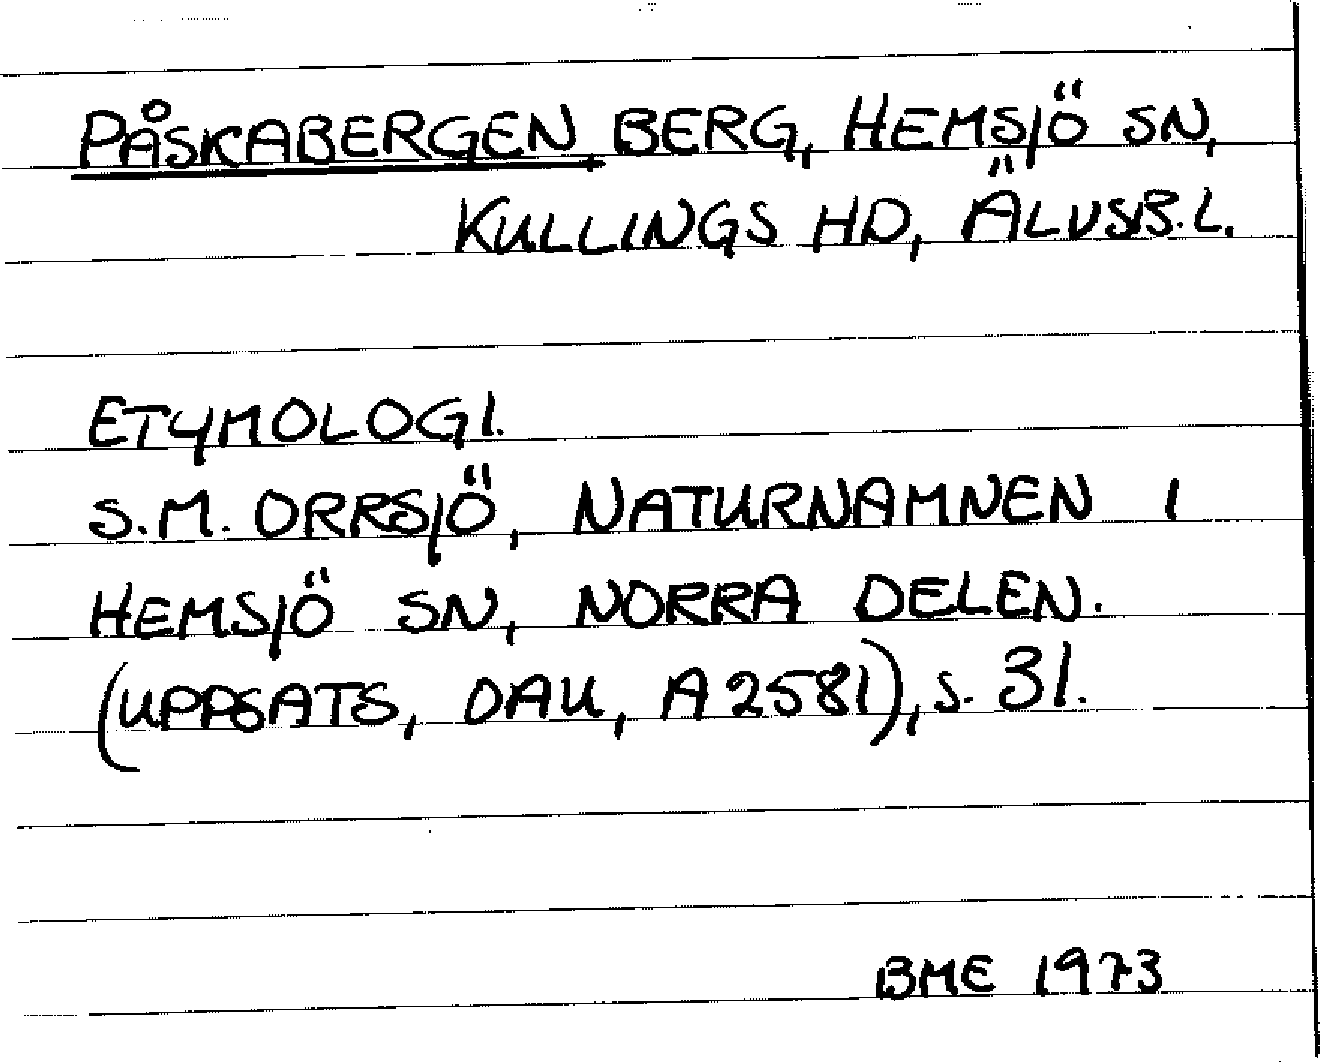 PÅSKABERGEN, BERG, HEMSJÖ SN,
KULLINGS HD, ÄLVSB.L.
ETYMOLOGI.
S.M. ORRSJÖ, NATURNAMNEN I
HEMSJÖ SN, NORRA DELEN.
(UPPSATS, DAU, A2581), s. 31.
BME 1973